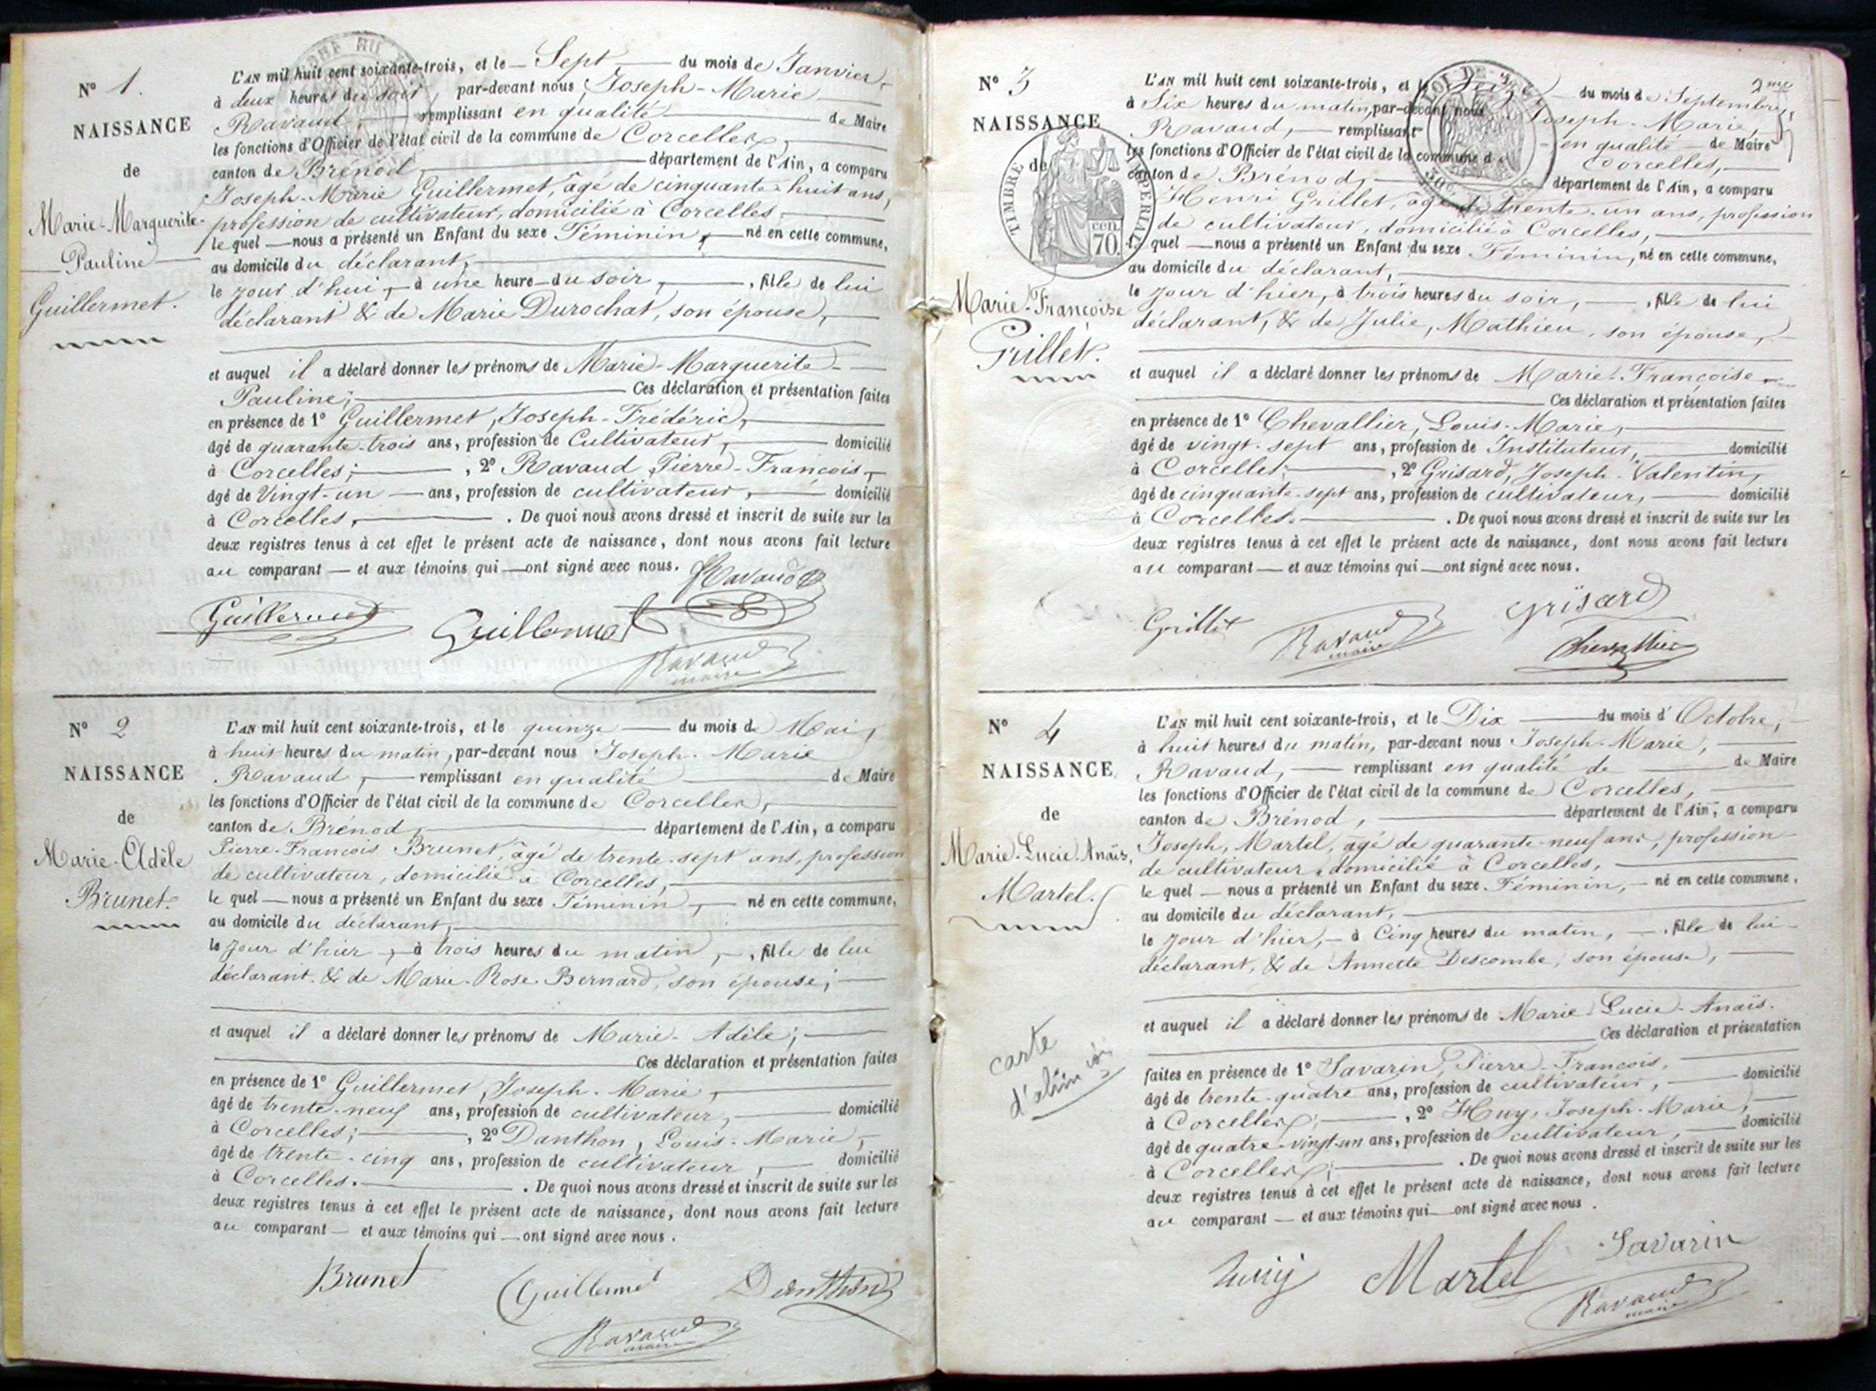 N° 1.
NAISSANCE
de
Marie-Marguerite-
Pauline
Guillermet.
L'AN mil huit cent soixante-trois, et le Sept du mois de Janvier,
à deux heures du soir par-devant nous Joseph-Marie
Ravaud remplissant en qualité de Maire
les fonctions d'Officier de l'état civil de la commune de Corcelles,
canton de Brénod, département de l'Ain, a comparu
Joseph-Marie Guillermet, âgé de cinquante-huit ans,
profession de cultivateur, domicilié à Corcelles,
le quel nous a présenté un Enfant du sexe Féminin, né en cette commune,
au domicile du déclarant,
le jour d'hui, à une heure du soir, , fille de lui
déclarant & de Marie Durochat, son épouse,
et auquel il a déclaré donner les prénoms de Marie-Marguerite-
Pauline; Ces déclaration et présentation faites
en présence de 1° Guillermet, Joseph-Frédéric,
âgé de quarante-trois ans, profession de Cultivateur, domicilié
à Corcelles; , 2° Ravaud Pierre-François,
âgé de Vingt-un ans, profession de cultivateur, domicilié
à Corcelles, . De quoi nous avons dressé et inscrit de suite sur les
deux registres tenus à cet effet le présent acte de naissance, dont nous avons fait lecture
au comparant et aux témoins qui ont signé avec nous.
Ravaud
Guillermet Guillermet
Ravaud
maire
N° 2
NAISSANCE
de
Marie-Adèle
Brunet.
L'AN mil huit cent soixante-trois, et le quinze du mois d Mai,
à huit heures du matin, par-devant nous Joseph-Marie
Ravaud, remplissant en qualité de Maire
les fonctions d'Officier de l'état civil de la commune de Corcelles,
canton de Brénod, département de l'Ain, a comparu
Pierre-François Brunet, âgé de trente-sept ans, profession
de cultivateur, domicilié à Corcelles,
le quel nous a présenté un Enfant du sexe Féminin, né en cette commune,
au domicile du déclarant,
le jour d'hier, à trois heures du matin, , fille de lui
déclarant & de Marie-Rose Bernard, son épouse;
et auquel il a déclaré donner les prénoms de Marie-Adèle;
Ces déclaration et présentation faites
en présence de 1° Guillermet, Joseph-Marie,
âgé de trente-neuf ans, profession de cultivateur, domicilié
à Corcelles; , 2° Danthon, Louis-Marie,
âgé de trente-cinq ans, profession de cultivateur, domicilié
à Corcelles. . De quoi nous avons dressé et inscrit de suite sur les
deux registres tenus à cet effet le présent acte de naissance, dont nous avons fait lecture
au comparant et aux témoins qui ont signé avec nous.
Brunet Guillermet Danthon
Ravaud
maire
2me
N° 3
NAISSANCE
de
TIMBRE
70.
Marie-Françoise
Grillet.
L'AN mil huit cent soixante-trois, et le du mois de Septembre,
à Six heures du matin, par-devant nous Joseph-Marie,
Ravaud, remplissant en qualité de Maire
les fonctions d'Officier de l'état civil de la commune de Corcelles,
canton de Brénod, département de l'Ain, a comparu
Henri Grillet, âgé de trente-un ans, profession
de cultivateur, domicilié à Corcelles,
le quel nous a présenté un Enfant du sexe Féminin, né en cette commune,
au domicile du déclarant,
le jour d'hier, à trois heures du soir, , fille de lui
déclarant, & de Julie, Mathieu, son épouse,
et auquel il a déclaré donner les prénoms de Marie-Françoise
Ces déclaration et présentation faites
en présence de 1° Chevallier, Louis-Marie,
âgé de vingt-sept ans, profession de Instituteur, domicilié
à Corcelles; , 2° Grisard, Joseph-Valentin,
âgé de cinquante-sept ans, profession de cultivateur, domicilié
à Corcelles. . De quoi nous avons dressé et inscrit de suite sur les
deux registres tenus à cet effet le présent acte de naissance, dont nous avons fait lecture
au comparant et aux témoins qui ont signé avec nous.
Grillet Ravaud
maire Grisard
Chevallier
N° 4
NAISSANCE
de
Marie-Lucie-Anaïs,
Martel.
carte
L'AN mil huit cent soixante-trois, et le Dix du mois d' Octobre,
à huit heures du matin, par-devant nous Joseph-Marie,
Ravaud, remplissant en qualité de de Maire
les fonctions d'Officier de l'état civil de la commune de Corcelles,
canton de Brénod, département de l'Ain, a comparu
Joseph, Martel, âgé de quarante-neuf ans, profession
de cultivateur, domicilié à Corcelles,
le quel nous a présenté un Enfant du sexe Féminin, né en cette commune,
au domicile du déclarant,
le jour d'hier, à Cinq heures du matin, , fille de lui
déclarant, & de Annette Descombe, son épouse,
et auquel il a déclaré donner les prénoms de Marie-Lucie-Anaïs.
Ces déclaration et présentation
faites en présence de 1° Savarin, Pierre-François,
âgé de trente-quatre ans, profession de cultivateur, domicilié
à Corcelles; , 2° Huy, Joseph-Marie,
âgé de quatre-vingt-un ans, profession de cultivateur, domicilié
à Corcelles; . De quoi nous avons dressé et inscrit de suite sur les
deux registres tenus à cet effet le présent acte de naissance, dont nous avons fait lecture
au comparant et aux témoins qui ont signé avec nous.
Martel Savarin
Ravaud
maire